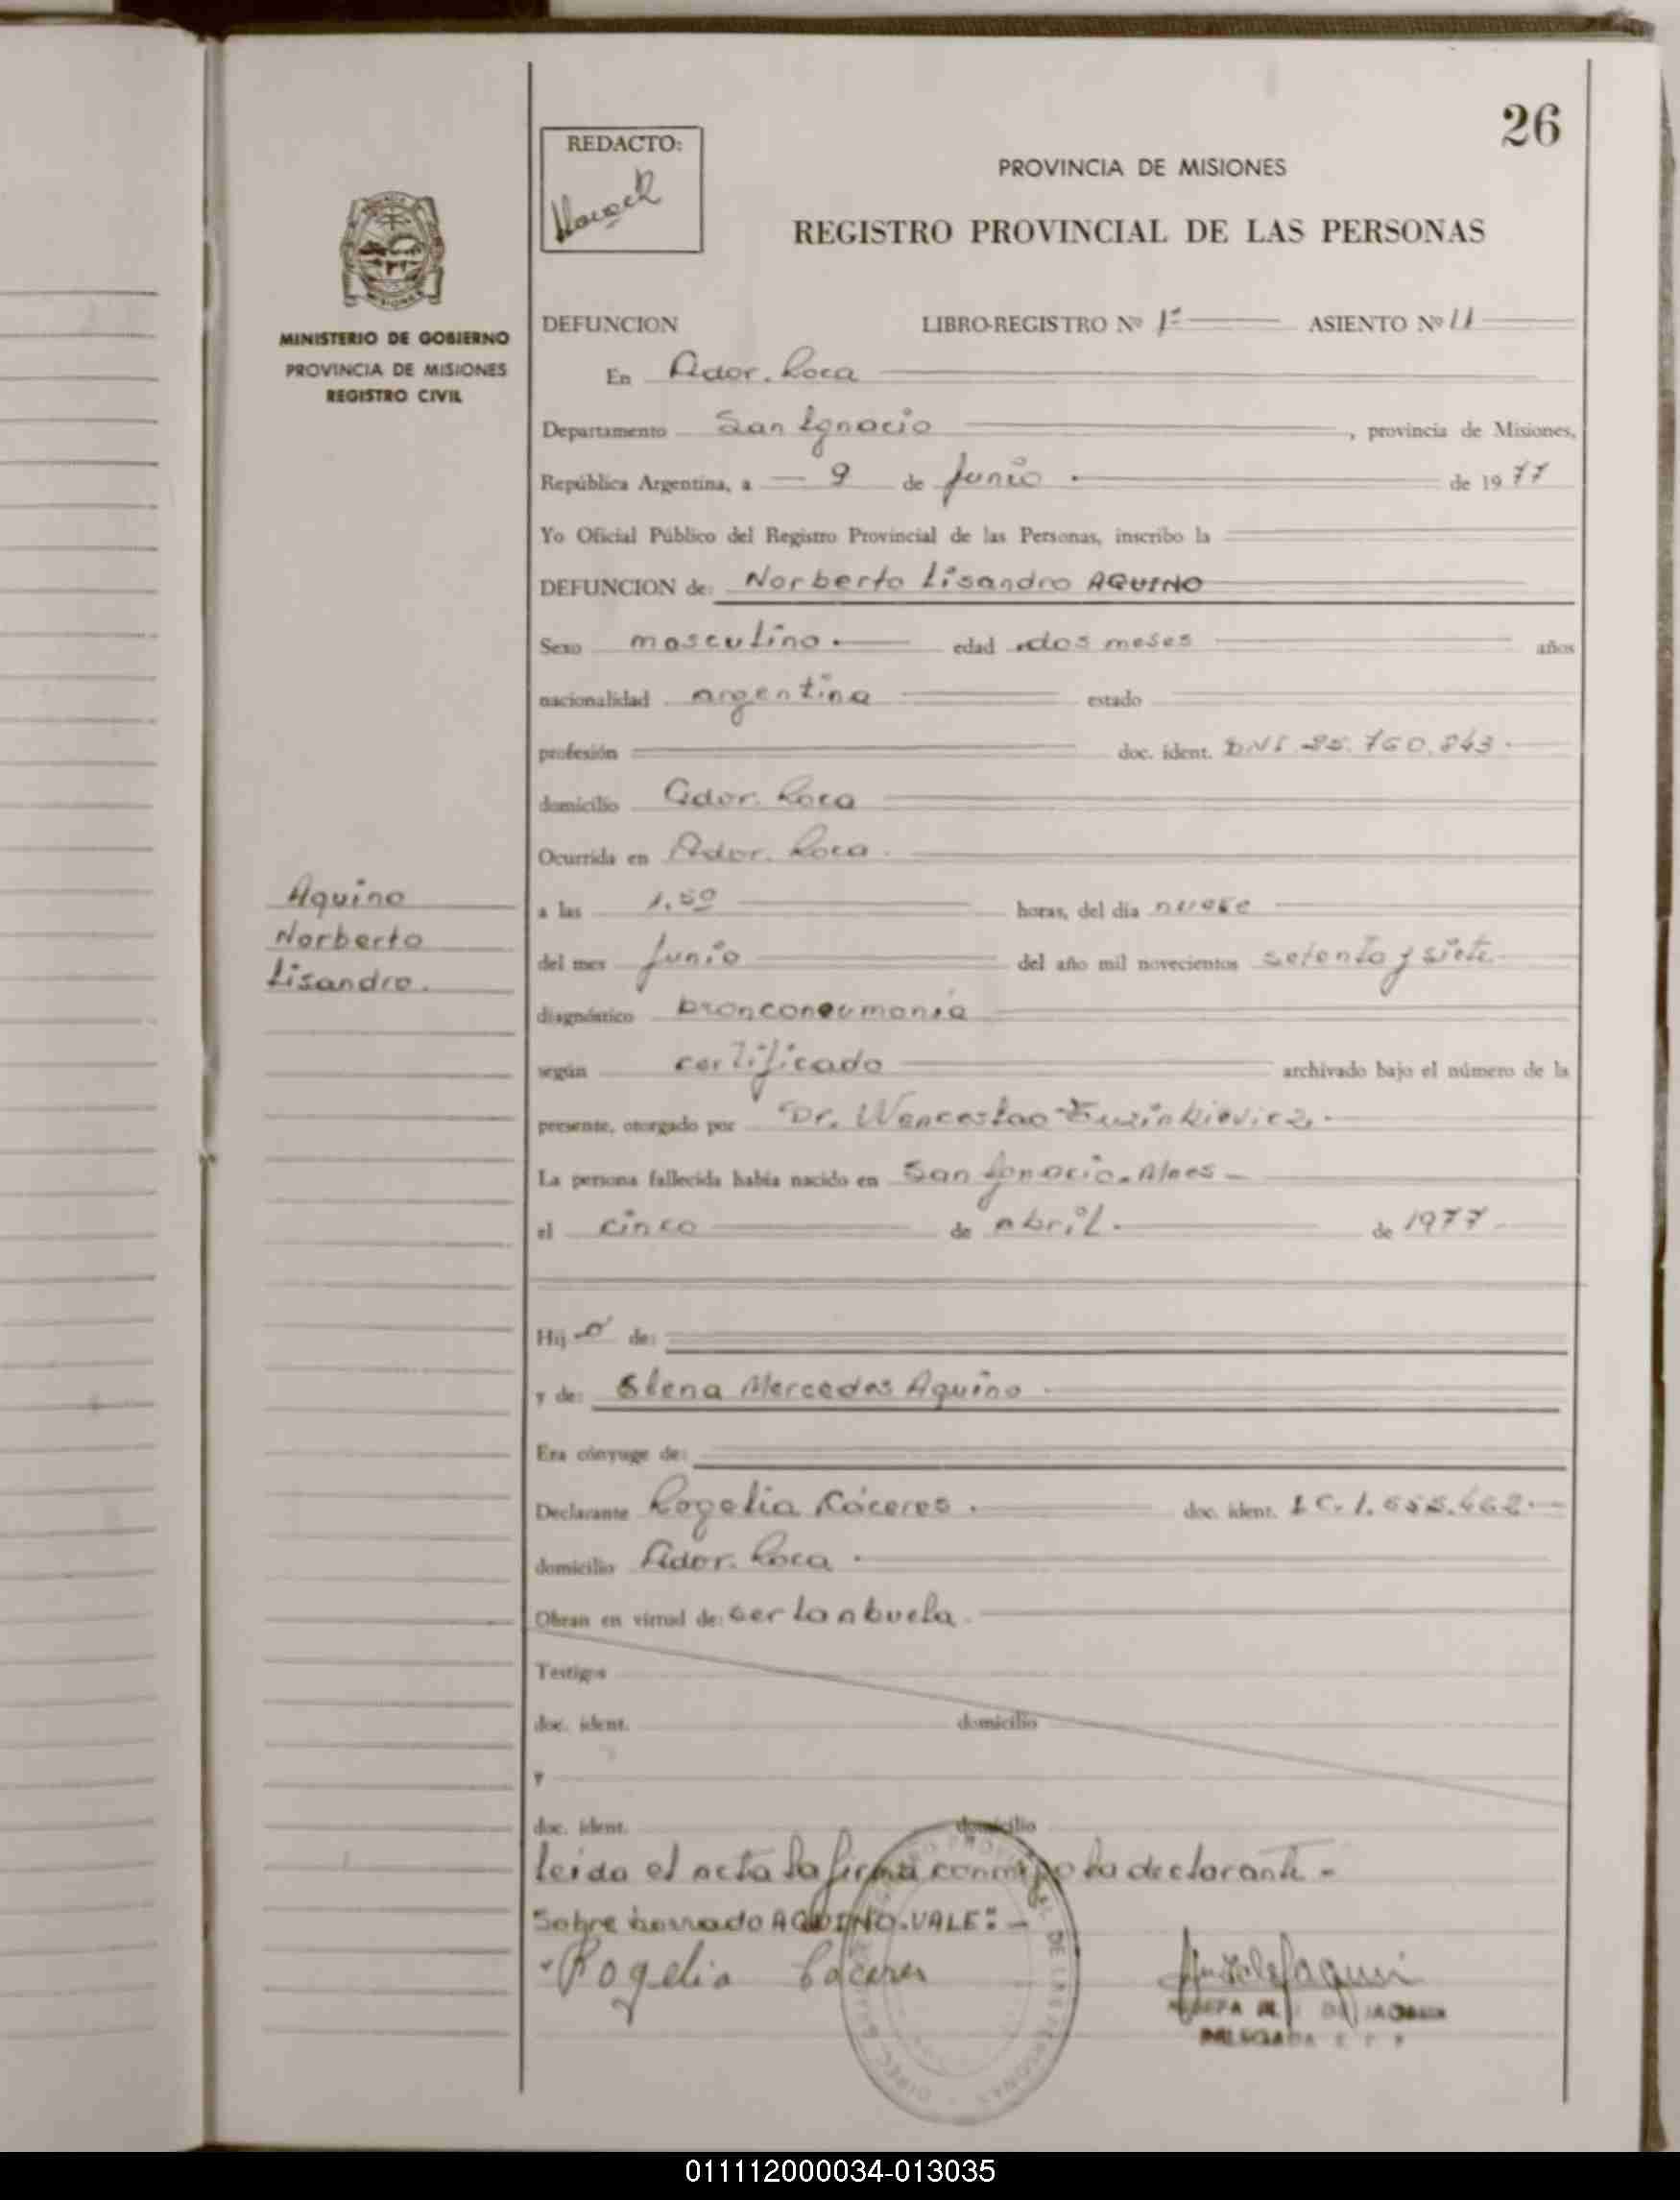 26
REDACTO:
PROVINCIA DE MISIONES
REGISTRO PROVINCIAL DE LAS PERSONAS
MISIONES
MINISTERIO DE GOBIERNO
PROVINCIA DE MISIONES
REGISTRO CIVIL
DEFUNCION LIBRO-REGISTRO Nº 1º ASIENTO Nº 11
En Gdor. Roca
Departamento San Ignacio, provincia de Misiones,
República Argentina, a 9 de junio de 1977
Yo Oficial Público del Registro Provincial de las Personas, inscribo la
DEFUNCION de: Norberto Lisandro AQUINO
Sexo masculino. edad dos meses años
nacionalidad argentina estado
profesión doc. ident. DNI 25.760.843
domicilio Gdor. Roca
Ocurrida en Gdor. Roca.
Aquino
Norberto
Lisandro.
a las 1,50 horas, del día nueve
del mes junio del año mil novecientos setenta y siete
diagnóstico bronconeumonia
según certificado archivado bajo el número de la
presente, otorgado por Dr. Wenceslao
La persona fallecida había nacido en San Ignacio. Mnes
el cinco de abril. de 1977
Hij o de:
y de: Elena Mercedes Aquino
Era cónyuge de:
Declarante Rogelia Cáceres. doc. ident. LC. 1.
domicilio Gdor. Roca.
Obran en virtud de: ser la abuela.
Testigos
doc. ident. domicilio
y
doc. ident. domicilio
leida el acta la firma conmigo la declarante-
Sobre borrado AQUINO. VALE:-
Rogelia Caceres
DELEGADA R. P. P.
011112000034-013035